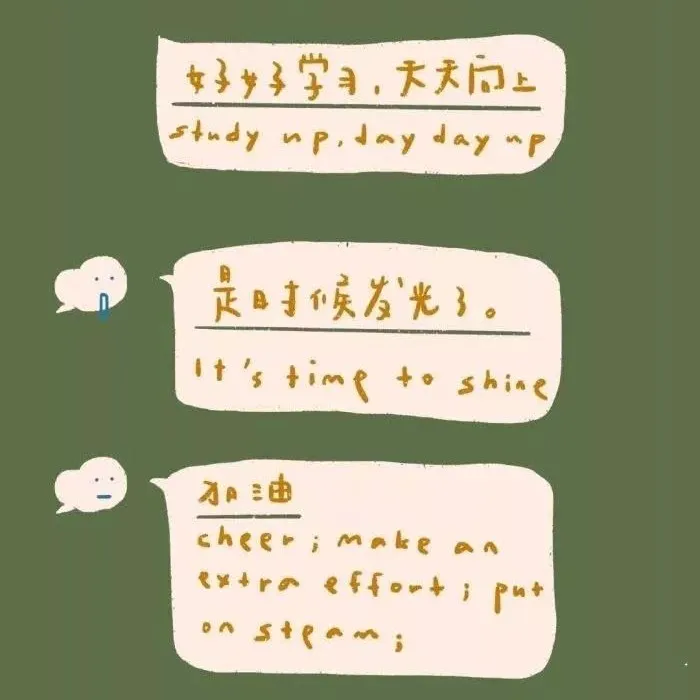 好好学习，天天向上
study up, day day up
是时候发光了。
It's time to shine
加油
cheer; make an
extra effort; put
on steam;